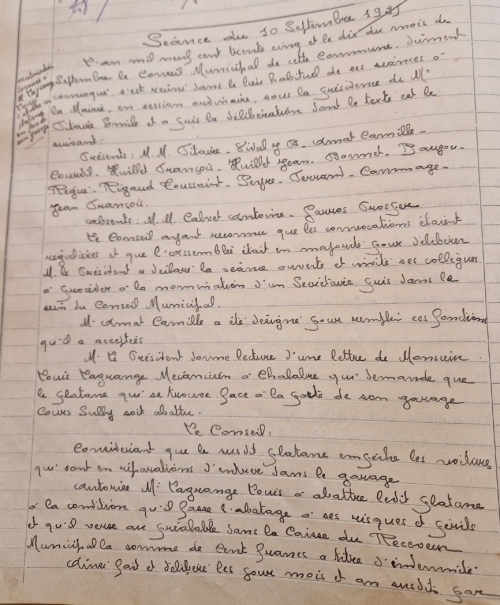 Séance du 10 Septembre 1935
L'an mil neuf cent trente cinq et le dix du mois de
Septembre le Conseil Municipal de cette Commune, dûment
convoqué, s'est réuni dans le lieu habituel de ses séances à
la Mairie, en session ordinaire, sous la présidence de Mr
Emile et a pris la délibération dont le texte est le
suivant:
Présents: M.M. Vidal - Amat Camille -
Huillet François - Huillet Jean - Bonnet -
Rigaud Toussaint - Peyre - Ferrand -
Jean François.
Absents: M.M. Calvet Antoine - Garros Prosper
Le Conseil ayant reconnu que les convocations étaient
régulières et que l'assemblée était en majorité pour délibérer
M. le Président a déclaré la séance ouverte et invité ses collègues
à procéder à la nomination d'un Secrétaire pris dans le
sein du Conseil Municipal.
M. Amat Camille a été désigné pour remplir ces fonctions
qu'il a acceptées
M. le Président donne lecture d'une lettre de Monsieur
Louis Lagrange Mécanicien à Chalabre qui demande que
le platane qui se trouve face à la porte de son garage
Cours Sully soit abattu.
Le Conseil:
Considérant que le susdit platane empêche les voiture
qui sont en réparations d'entrer dans le garage
autorise Mr Lagrange Louis à abattre ledit platane
à la condition qu'il fasse l'abatage à ses risques et périls
et qu'il verse au préalable dans la Caisse du Receveur
Municipal la somme de Cent francs à titre d'indemnité.
Ainsi fait et délibéré les jour mois et an susdits par